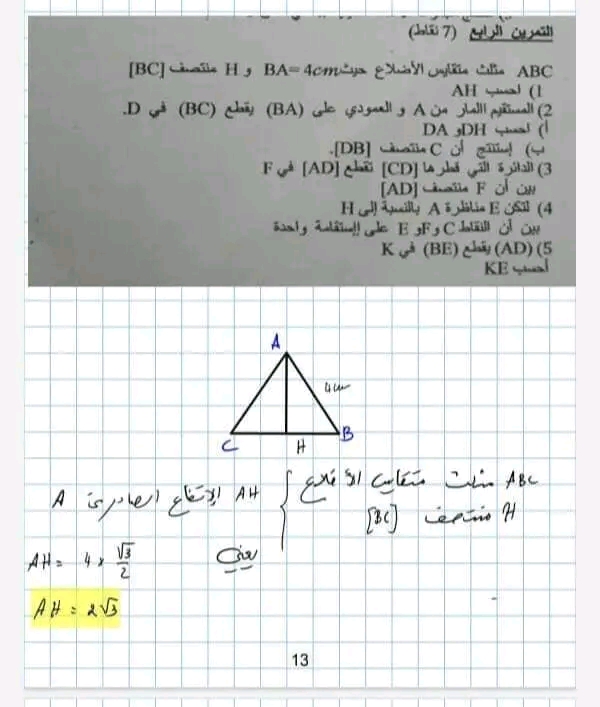 التمرين الرابع (7 نقاط)
ABC مثلث متقايس الأضلاع حيث BA= 4cm و H منتصف [BC]
1) احسب AH
2) المستقيم االمار من A و العمودي على (BA) يقطع (BC) في D.
أ) احسب DH و DA
ب) إستنتج أن C منتصف [DB].
3) الدائرة التي قطرها [CD] تقطع [AD] في F
بين أن F منتصف [AD]
4) لتكن E مناظرة A بالنسبة إلى H
بين أن النقاط C و F و E على إإستقامة واحدة
5) (AD) يقطع (BE) في K
أحسب KE
A
4cm
C
H
B
ABC مثلث متقايس الأضلاع
H منتصف [BC]
يعني
AH الإرتفاع الصادر من A
AH = 4 × √3/2
AH = 2√3
13